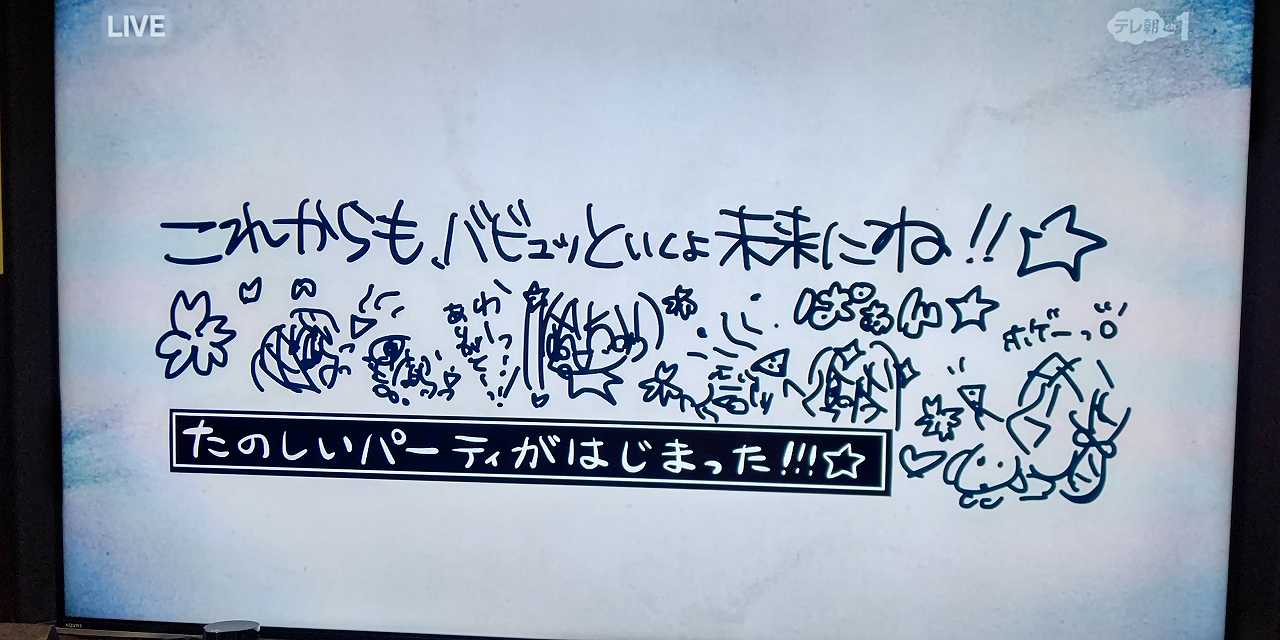 LIVE
テレ朝ch1
これからも、バビュッといくよ未来にね!!☆
ホゲーっ
たのしいパーティがはじまった!!!☆
AQUOS